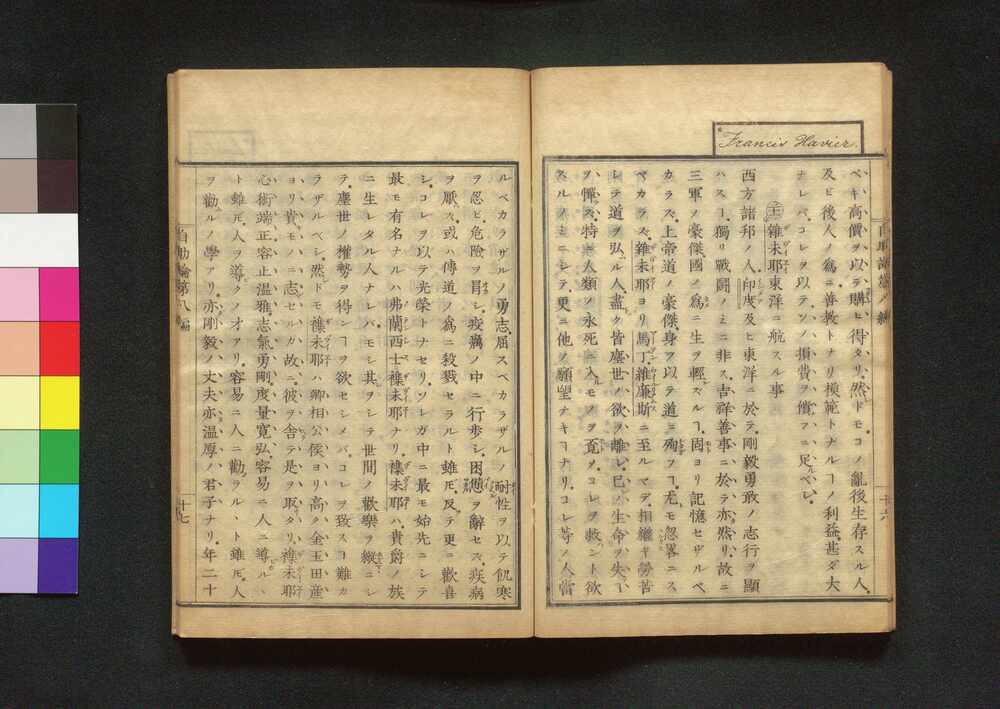 Francis Xavier.
ベキ高價ヲ以テ購ヒ得タリ、然ドモコノ亂後生存スル人、
及ビ後人ノ爲ニ善教トナリ模範トナルヿノ利益甚ダ大
ナレバ、コレヲ以テソノ損費ヲ償フニ足ルベシ、
雜未耶東洋ニ航スル事
西方諸邦ノ人、印度及ヒ東洋ニ於テ、剛毅勇敢ノ志行ヲ顯
ハスヿ、獨リ戰鬪ノミニ非ス、吉祥善事ニ於テ亦然リ、故ニ
三軍ノ豪傑、國ノ爲ニ生ヲ輕ズルヿ、固ヨリ記憶セザルベ
カラズ、上帝道ノ豪傑、身ヲ以テ道ニ殉フヿ、尤モ忽畧ニス
ベカラズ、雜未耶ヨリ馬丁、維廉斯ニ至ルマデ、相繼ギ勞苦
シテ道ヲ弘ル人、盡ク皆塵世ノ欲ヲ離レ、己ノ生命ヲ失フヿ
ヲ憚ス、特ニ人類ノ永死ニ入モノヲ覓メ、コレヲ救ント欲
スルノミニシテ、更ニ他ノ願望ナキヿナリ、コレ等ノ人、當
十六
ルベカラザルノ勇志、屈スベカラザルノ耐性ヲ以テ、飢寒
ヲ忍ビ、危險ヲ冒シ、疫癘ノ中ニ行歩シ、困憊ヲ辭セズ、疾病
ヲ厭ズ、或ハ傳道ノ爲ニ殺戮セラルト雖𪜈、反テ更ニ歡喜
シ、コレヲ以テ光榮トナセリ、ソレガ中ニ最モ始先ニシテ
最モ有名ナルハ、弗蘭西士襍未耶ナリ、襍未耶ハ、貴爵ノ族
ニ生レタル人ナレバ、モシ其ヲシテ世間ノ歡樂ヲ縱ニシ
テ、塵世ノ權勢ヲ得シヿヲ欲セシメバ、コレヲ致スヿ難カ
ラザルベシ、然ドモ襍未耶ハ、卿相公侯ヨリ高ク、金玉田産
ヨリ貴キモノニ志セルガ故ニ、彼ヲ舍テ是ヲ取タリ、襍未耶
心術端正、容止溫雅、志氣勇剛、度量寛弘、容易ニ人ニ導ル、
ト雖𪜈、人ヲ導クノオアリ、容易ニ人ニ勸ラル、ト雖𪜈、人
ヲ勸ルノ學アリ、亦剛毅ノ丈夫、亦溫厚ノ君子ナリ、年二十
自助論第八編
十七